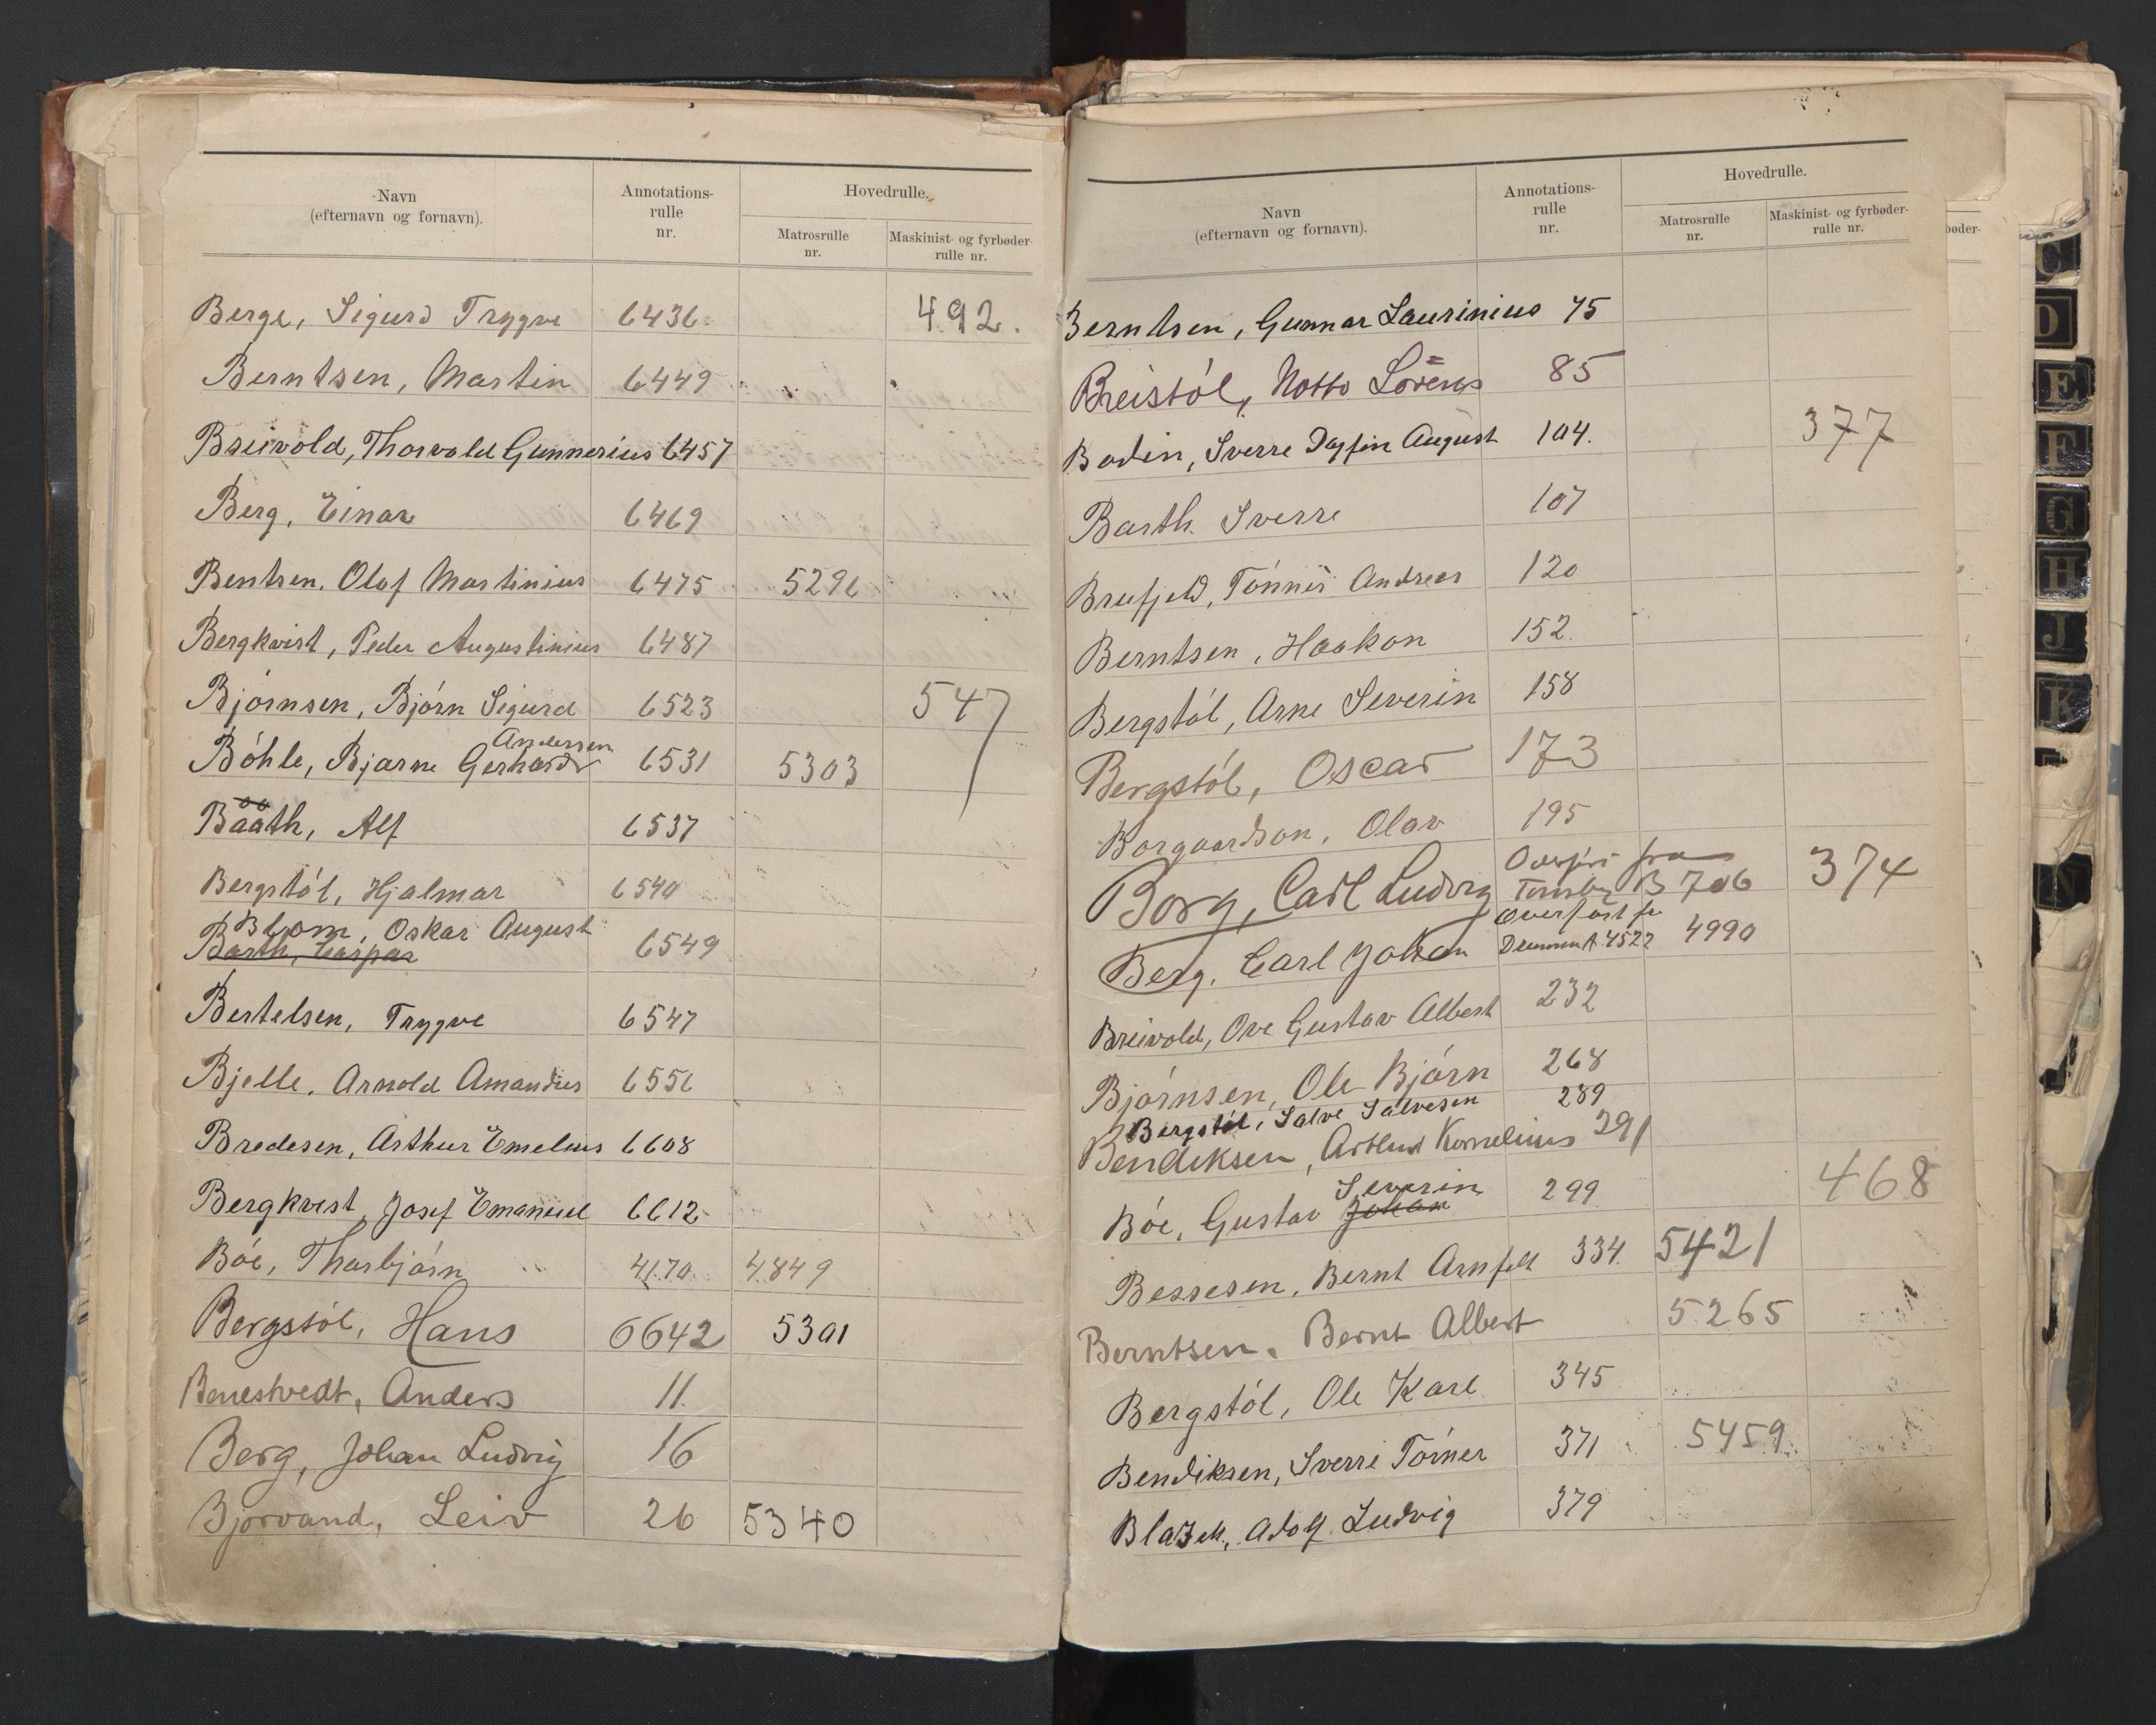 Navn
(efternavn og fornavn).
Annotations-
rulle
nr.
Hovedrulle.
Matrosrulle
nr.
Maskinist- og fyrbøder-
rulle nr.
Berge, Sigurd Trygve 6436. 492.
Berntsen, Martin 6449
Breivold, Thorvald Gunnerius 6457
Berg, Einar 6469
Bentsen, Olaf Martinius 6475 5296
Bergkvist, Peder Augustinius 6487
Bjørnsen, Bjørn Sigurd 6523 547
Andersen
Böhle, Bjarne Gerhard 6531 5303
Baath, Alf 6537
Bergstöl, Hjalmar 6540
Blom, Oskar August
Barth, Caspar 6549
Bertelsen, Trygve 6547
Bjelle, Arnold Amandus 6556
Bredesen, Arthur Emelius 6608
Bergkvist, Josef Emanuel 6612
Böe, Thorbjörn 4170 4849
Bergstöl, Hans 6642 5301
Benestvedt, Anders 11.
Berg, Johan Ludvig 16
Bjorvand, Leiv 26 5340
Navn
(efternavn og fornavn).
Annotations-
rulle
nr.
Hovedrulle.
Matrosrulle
nr.
Maskinist- og fyrbøder-
rulle nr.
bøder-
Berntsen, Gunnar Laurinius 75
Breistöl, Notto Lorens 85
Bodin, Sverre Dagfin August 104. 377
Barth. Sverre 107
Brufjeld, Tönnes Andreas 120
Berntsen, Haakon 152.
Bergstöl, Arne Severin 158
Bergstöl, Oscar 173
Borgaardson, Olav 195
Overført fra
Borg, Carl Ludvig Tönsberg B 706 374
Overført fr
Berg, Carl Johan A 4522 4990
Breivold, Ove Gustav Albert 232
Bjørnsen, Ole Bjørn 268
Bergstöl, Salve Salvesen 289
Bendiksen, Arthur Kornelius 291
Severin
Böe, Gustav Johan 299 468
Bessesen, Bernt Arnfelt 334. 5421
Berntsen, Bernt Albert 5265
Bergstöl, Ole Karl 345
Bendiksen, Sverre Törner 371 5459
Blazek, Adolf Ludvig 379
C
D
E
F
G
H
J
K
N